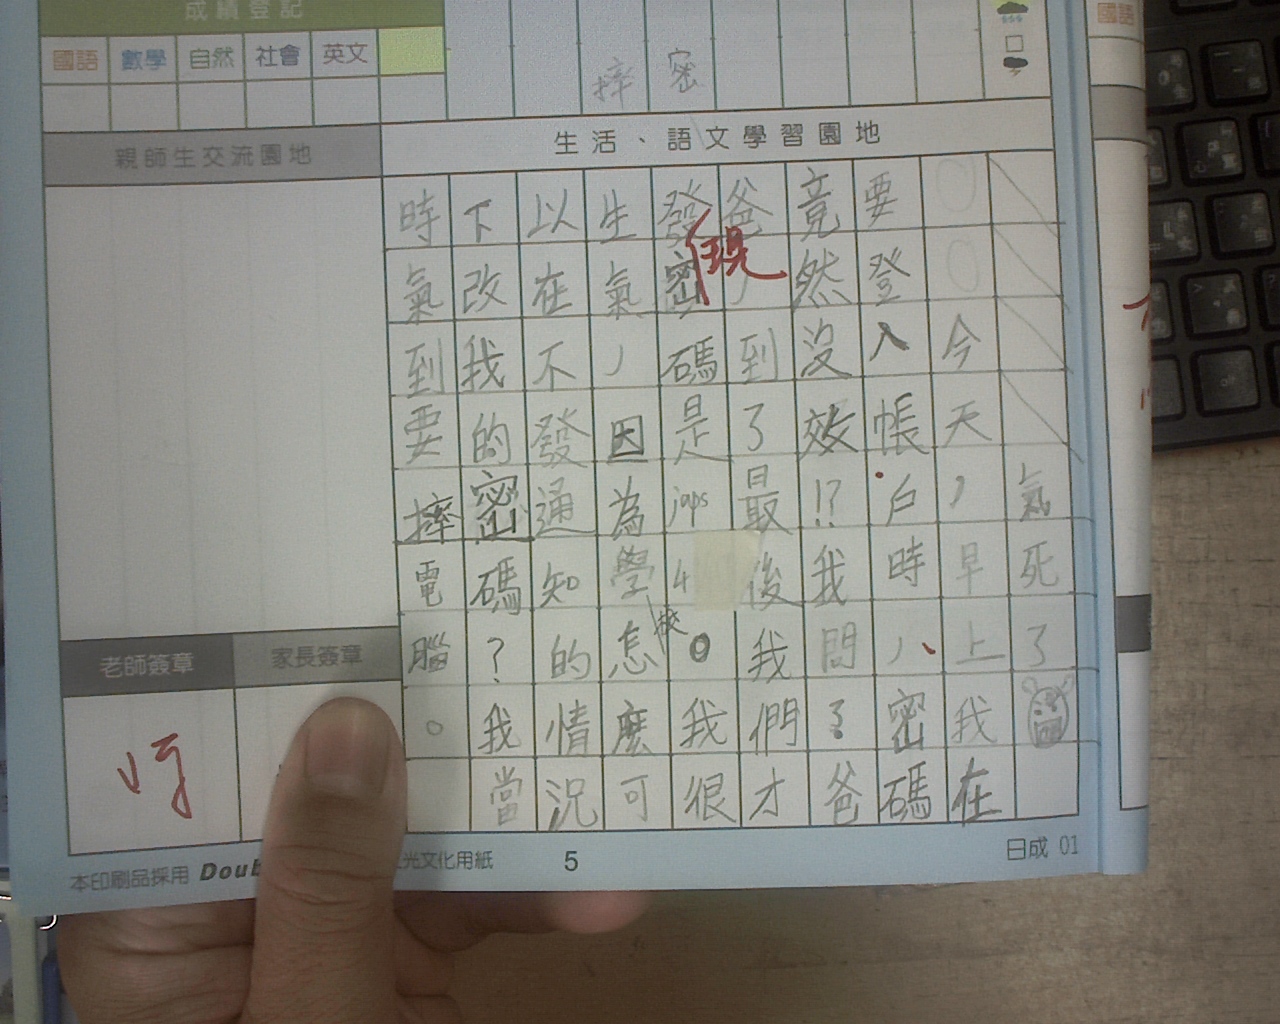 成績登記
國語 數學 自然 社會 英文
密
摔
國語
親師生交流園地
生活、語文學習園地
氣死了
今天，早上我在
要登入帳戶時，密碼
竟然沒效!?我問了爸
爸，到了最後我們才
發現密碼是japs4。我很
生氣，因為學校怎麼可
以在不發通知的情況
下改我的密碼？我當
時氣到要摔電腦。
老師簽章
家長簽章
本印刷品採用 Doub
光文化用紙
5
日成 01